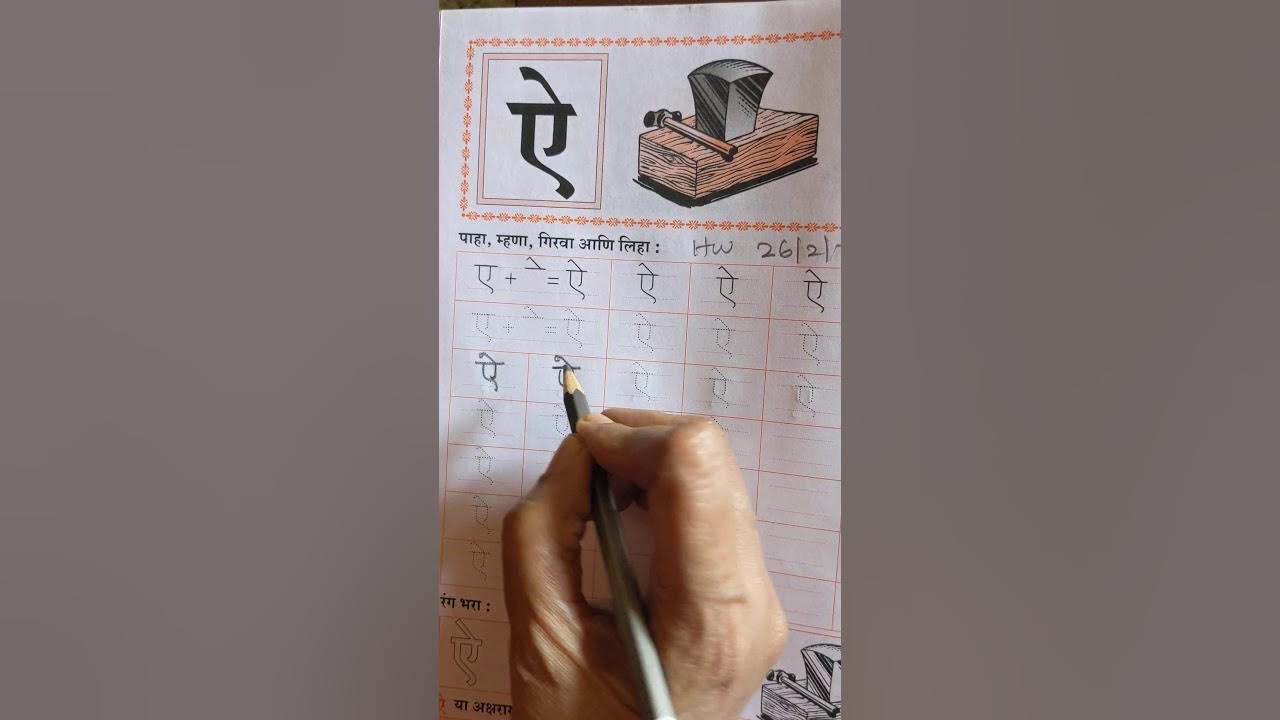 ऐ
पाहा, म्हणा, गिरवा आणि लिहा : HW 26/2/
ए + े = ऐ ऐ ऐ ऐ
ए + े = ऐ ऐ ऐ ऐ
ऐ ऐ ऐ ऐ ऐ
ऐ
ऐ
ऐ
ऐ
रंग भरा :
ऐ
ऐ या